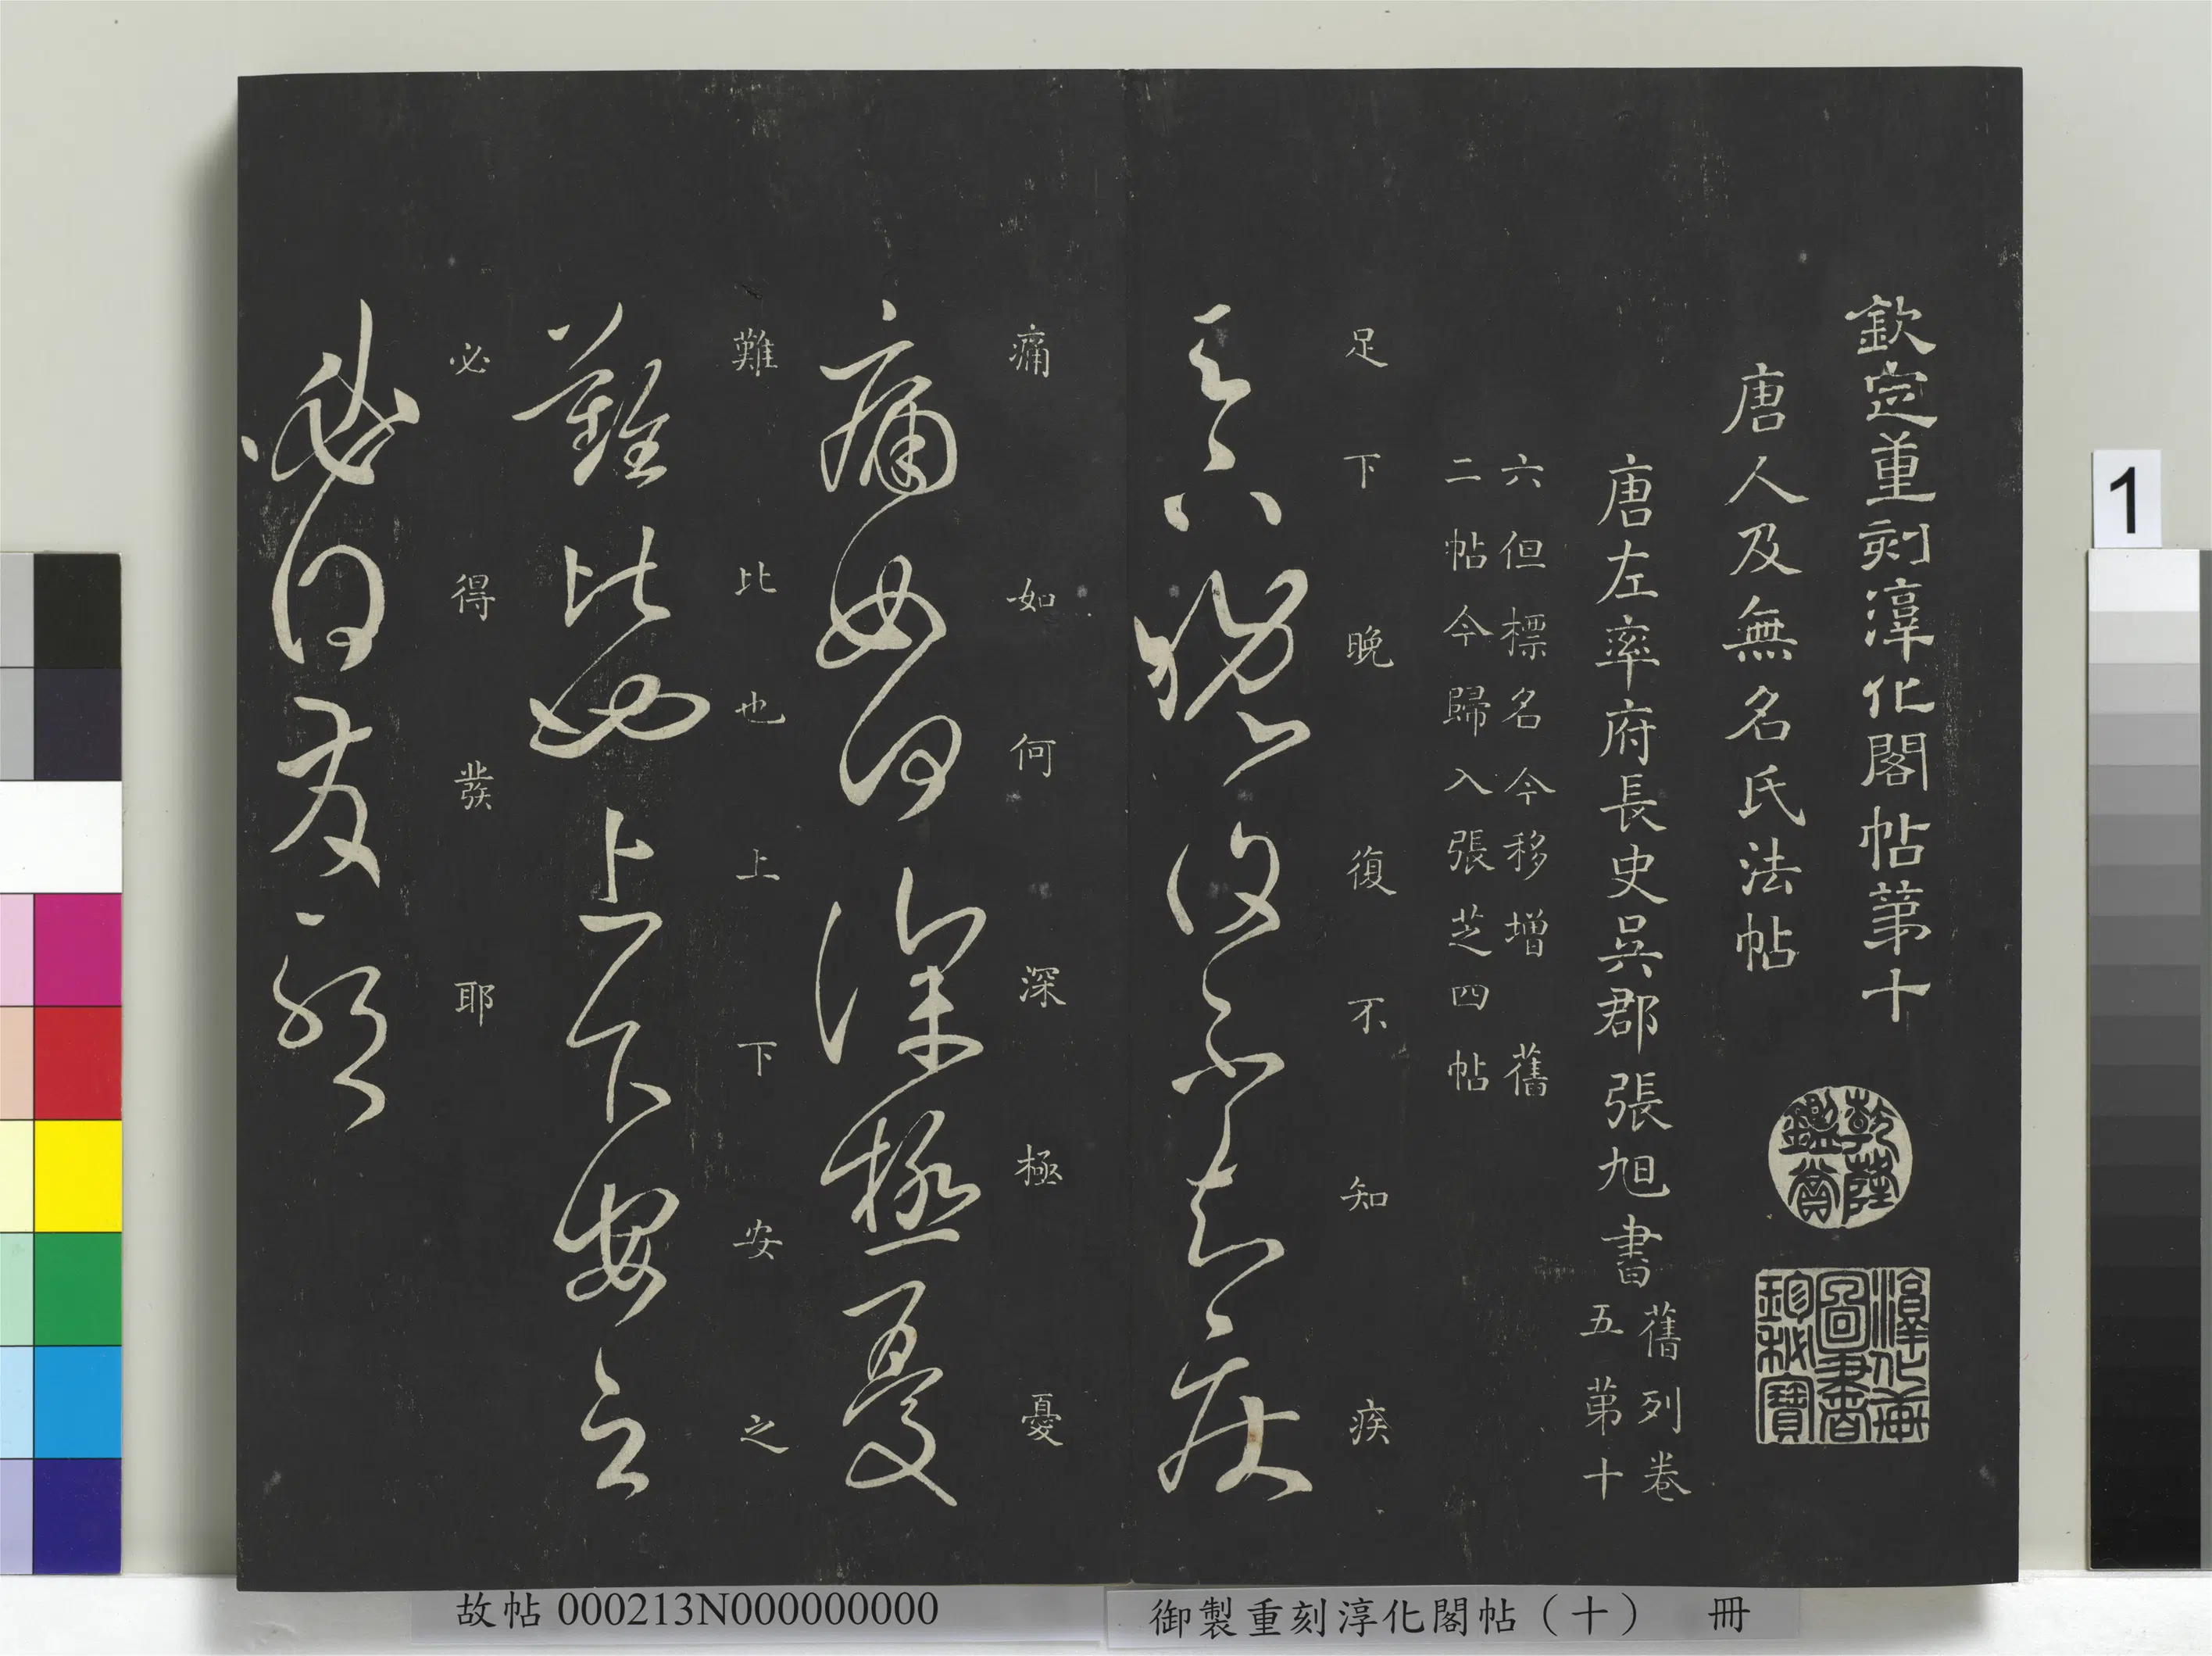 欽定重刻淳化閣帖第十
乾隆鑑賞
淳化軒圖書珍秘寶
唐人及無名氏法帖
唐左率府長史吳郡張旭書
舊列卷
五第十
六但標名今移增 舊
二帖今歸入張芝四帖
足下晚復不知疾
足下晚復不知疾
痛如何深極憂
痛如何深極憂
難比也上下安之
難比也上下安之
必得發耶
必得發耶
1
故帖 000213N000000000
御製重刻淳化閣帖（十） 冊